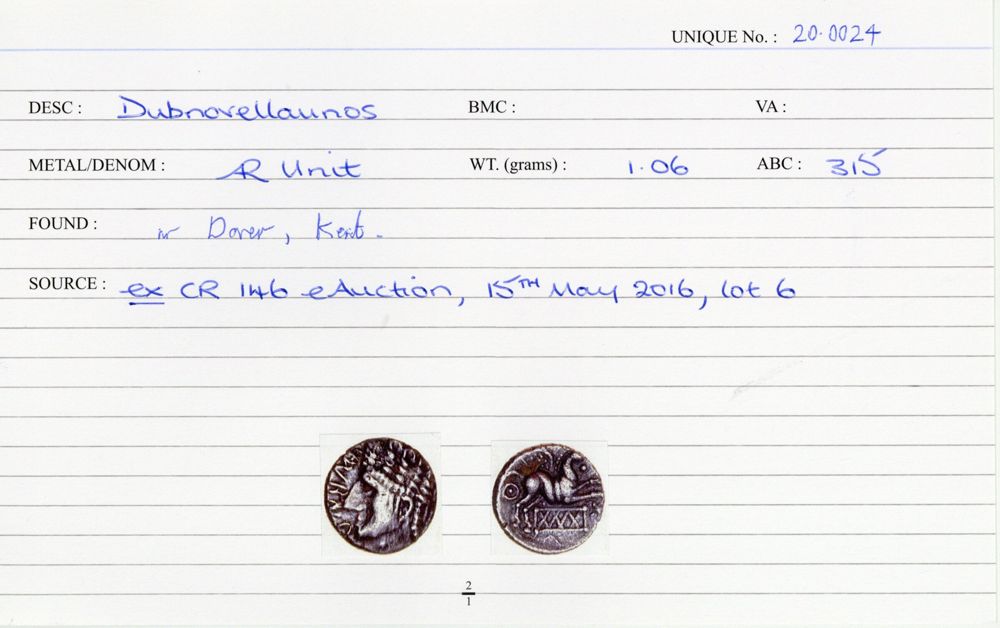 UNIQUE No. : 20.0024
DESC : Dubnovellaunos BMC : VA :
METAL/DENOM : AR Unit WT. (grams) : 1.06 ABC : 315
FOUND : nr Dover, Kent.
SOURCE : ex CR 146 eAuction, 15TH May 2016, lot 6
2
1